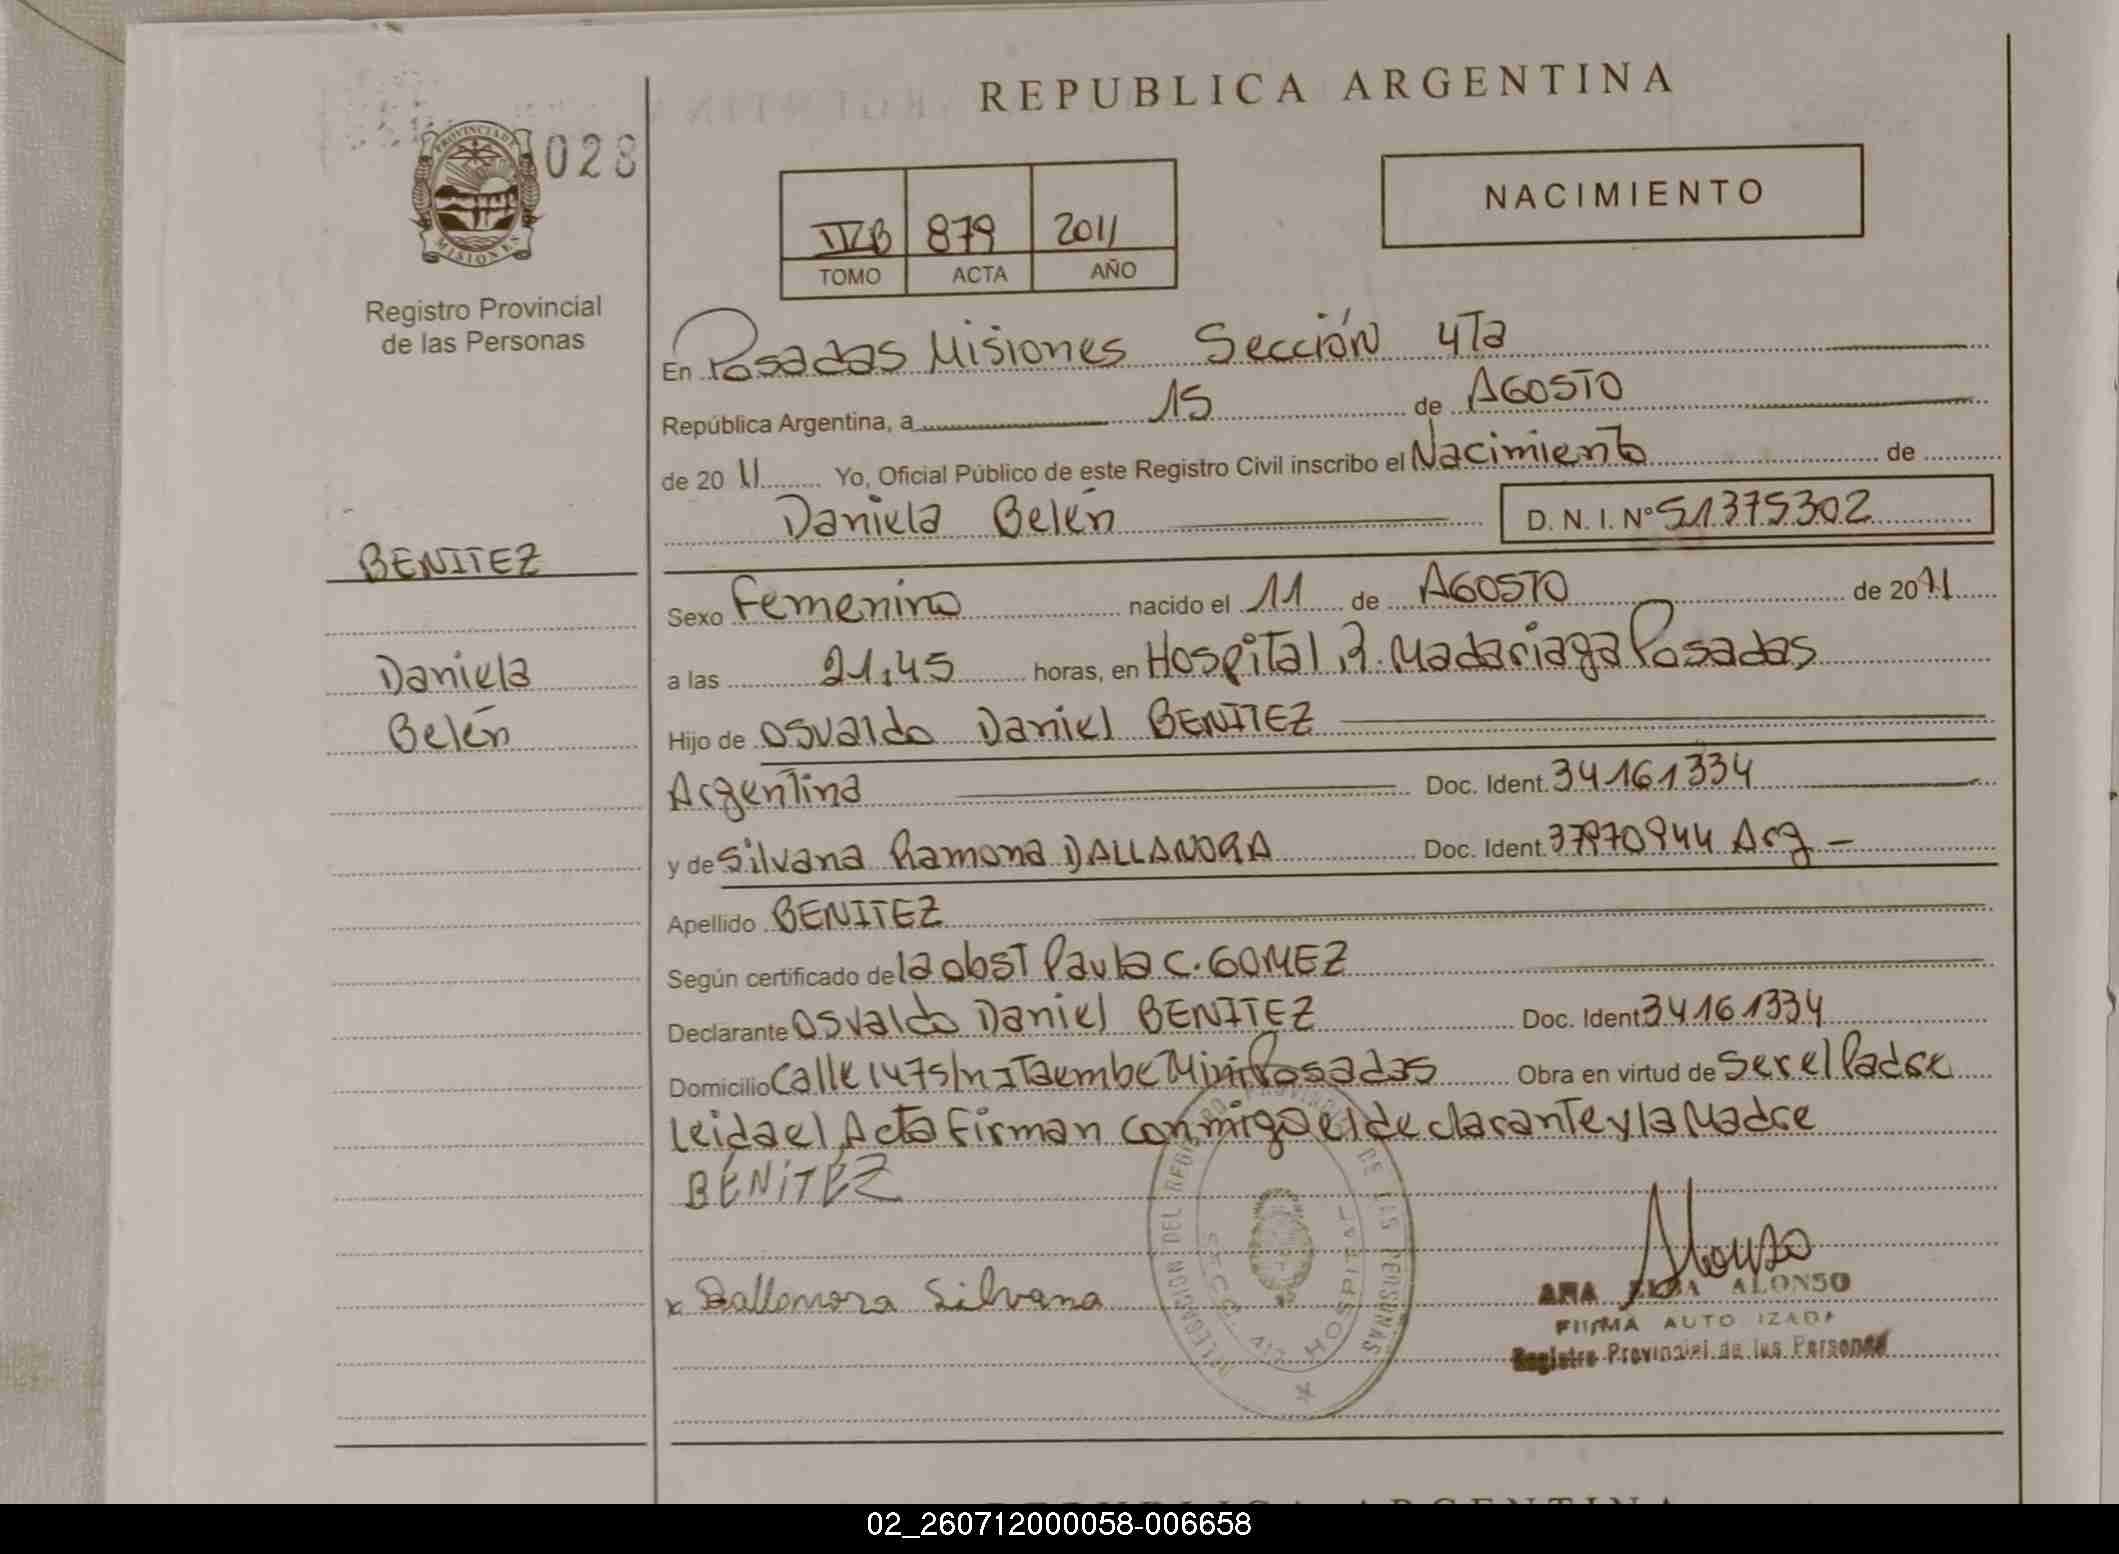 REPUBLICA ARGENTINA
PROVINCIA DE
MISIONES
028
Registro Provincial
de las Personas
879 2011
TOMO ACTA AÑO
NACIMIENTO
En Posadas Misiones Sección 4Ta
República Argentina, a 15 de AGOSTO
de 20 11 Yo, Oficial Público de este Registro Civil inscribo el Nacimiento de
Daniela Belén D. N. I. Nº 51375302
BENITEZ
Daniela
Belén
Sexo Femenino nacido el 11 de AGOSTO de 2011
a las 21,45 horas, en Hospital R. Madariaga Posadas
Hijo de Osvaldo Daniel BENITEZ
Argentina Doc. Ident. 34161334
y de Silvana Ramona DALLANORA Doc. Ident. 37970944 Arg -
Apellido BENITEZ
Según certificado de la obst Paula C. GOMEZ
Declarante Osvaldo Daniel BENITEZ Doc. Ident 34161334
Domicilio Calle 147 S/n Itaembe Mini Posadas Obra en virtud de ser el Padre
leida el Acta firman conmigo el declarante y la Madre
BENÍTEZ
x Dallanora Silvana
DELEGACION DEL REGISTRO PROVINCIAL DE LAS PERSONAS
SECC. 4ta HOSPITAL
Alonso
ANA ELBA ALONSO
FIRMA AUTO IZADA
Registro Provincial de las Personas
REPUBLICA ARGENTINA
02_260712000058-006658